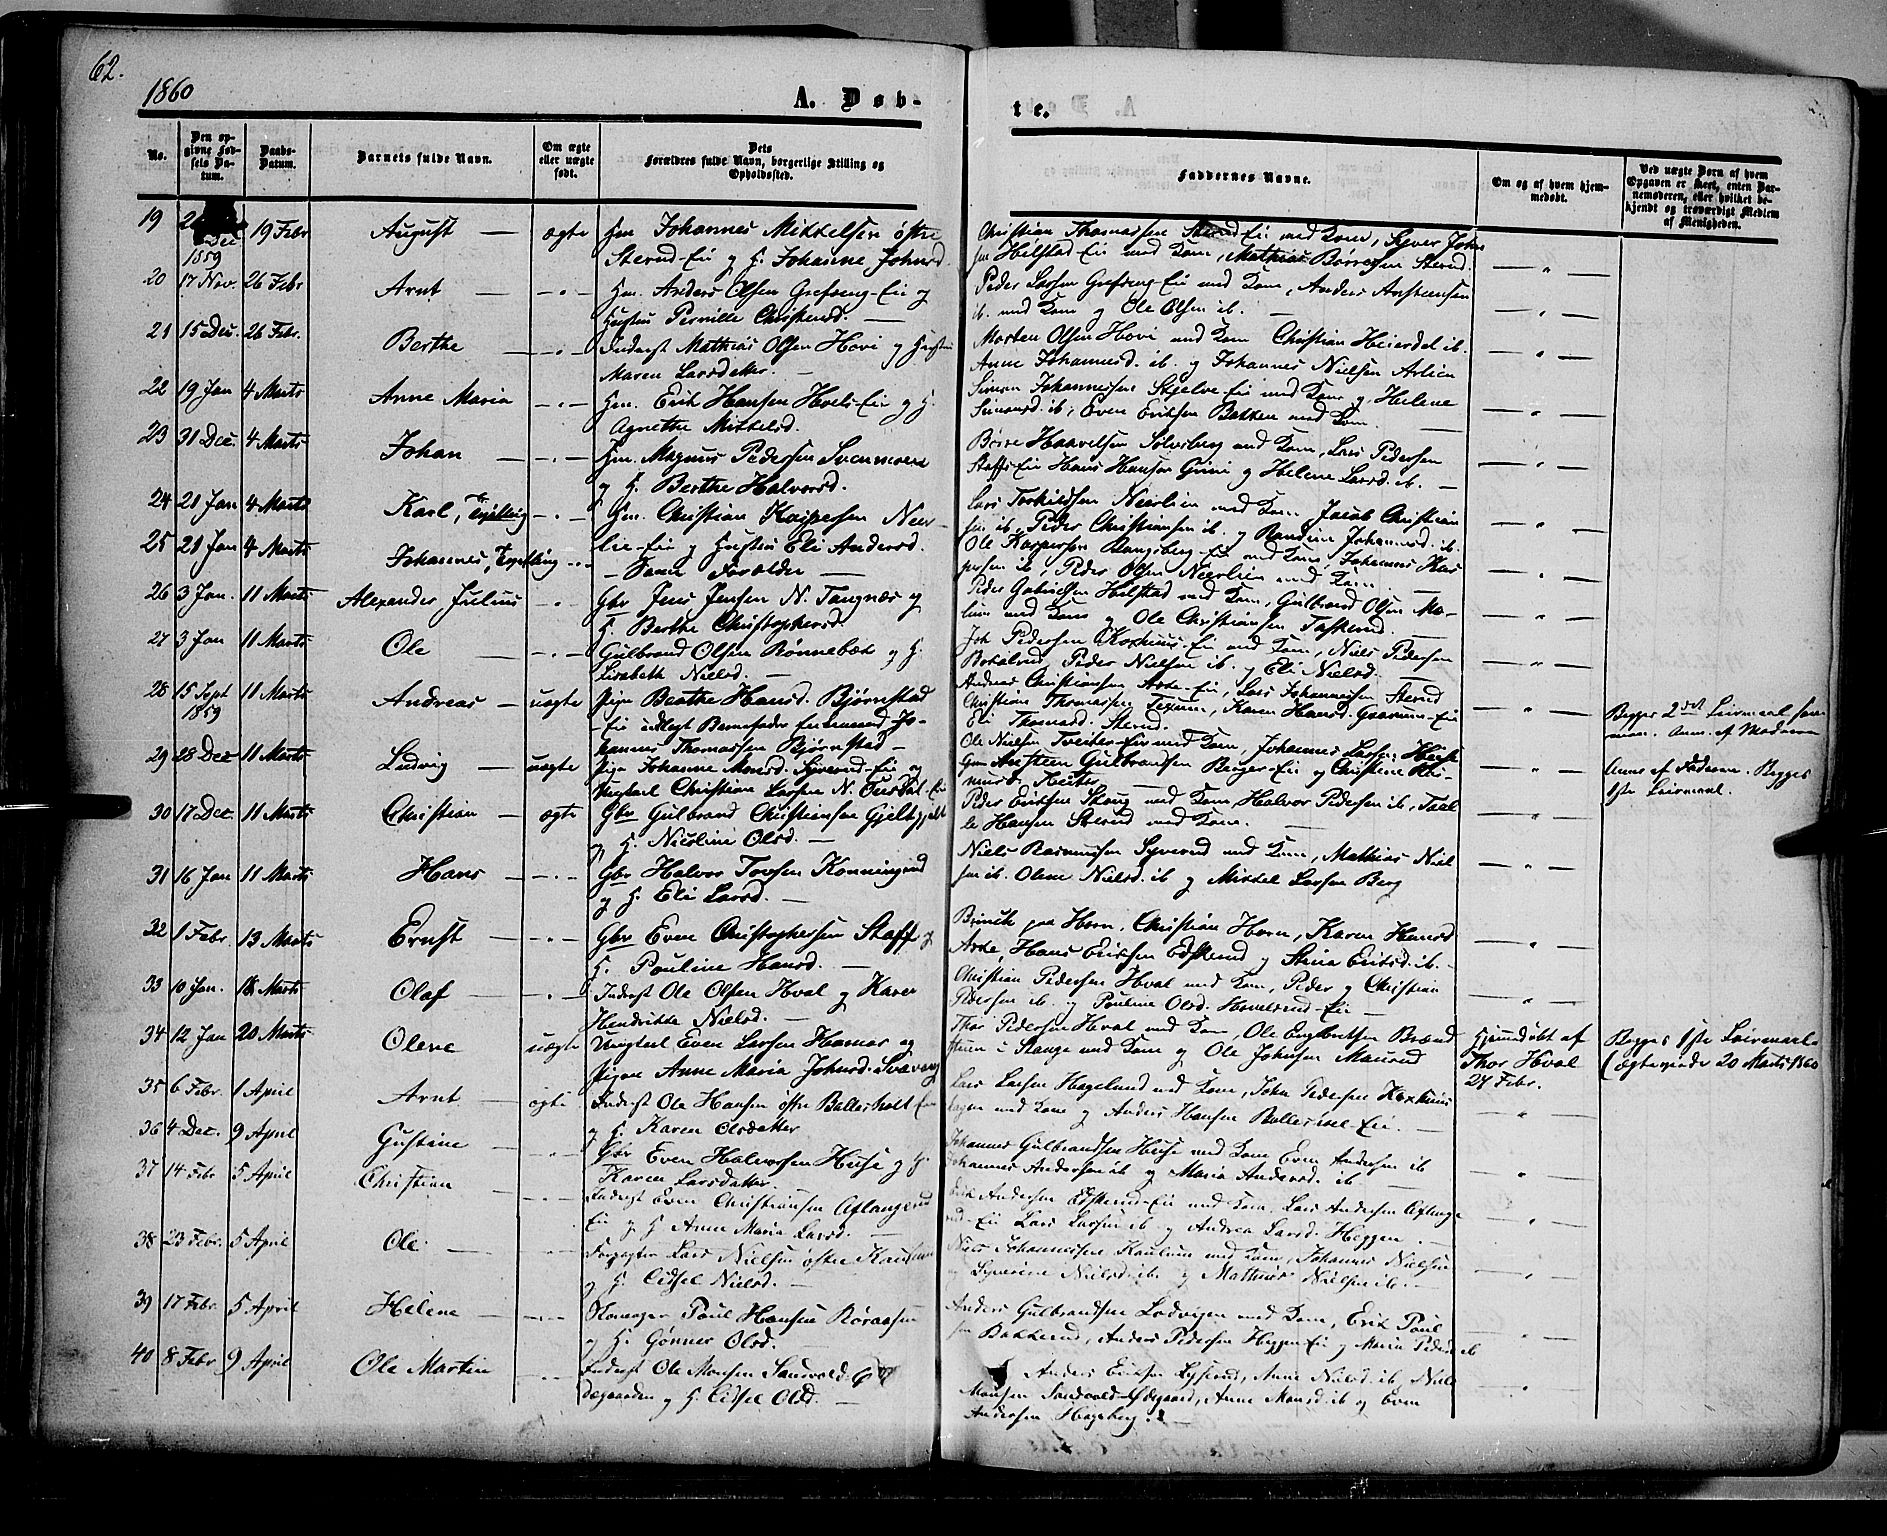 62.
1860
A. Døb-
te.
No.
Den op-
givne Fød-
sels Da-
tum.
Daabs-
Datum.
Barnets fulde Navn.
Om ægte
eller uægte
født.
Dets
Forældres fulde Navn, borgerlige Stilling og
Opholdssted.
Faddernes Navne.
Om og af hvem hjem-
medøbt.
Ved uægte Børn af hvem
Opgaven er skeet, enten Bar-
nemoderen, eller hvilket be-
kjendt og troværdigt Medlem
af Menigheden.
19 Dec 1859 19 Febr August — ægte Hm Johannes Mikkelsen østre
Sterud-Eie og H. Johanne Johnsd.
Christian Thomassen Sterud-Eie med Kone, Syver Johan
sen Hilstad-Eie med Kone, Mathias Børresen Sterud.
20 17 Nov. 26 Febr Arnt — - " - Hm. Anders Olsen Grefseng-Eie og
Hustru Pernille Christensd. —
Peder Larsen Grefseng-Eie med Kone, Anders
ib. med Kone og Ole Olsen ib. —
21 15 Dec. 26 Febr. Berthe — - " - Inderst Mathias Olsen Hovi og Hustru
Maren Larsdatter. —
Morten Olsen Hovi med Kone Christian Heierdal ib.
Anne Johannesd. ib. og Johannes Nielsen Aslien
22 19 Jan 4 Marts Anne Maria - " - Hm. Erik Hansen Hvels-Eie og H.
Agnethe Mikkelsd.
Simen Johannessen Skjelve-Eie med Kone og Helene
Simensd. ib, Even Eriksen Bakken med Kone.
23 31 Dec. 4 Marts Johan — - " - Hm. Magnus Pedersen Svenmoen
og H. Berthe Halvorsd.
Børre Haavelsen Sølvsberg med Kone, Lars Pedersen
Staffs-Eie Hans Hansen Grini og Helene Larsd. ib. —
24 21 Jan 4 Marts Karl, Tvilling - " - Hm. Christian Kaspersen Neer-
lie-Eie og Hustru Eli Andersd.
Lars Torkildsen Neerlien med Kone, Jacob Christian
sen ib, Peder Christiansen ib. og Randine Johannesd. ib.
25 21 Jan 4 Marts Johannes, Tvilling - " - — Samme Forældre —
Ole Kaspersen Rangsberg-Eie med Kone, Johannes Kas
persen ib, Peder Olsen Neerlien med Kone —
26 3 Jan. 11 Marts Alexander Julius - " - Gbr Jens Jensen N. Tangnæs og
H. Berthe Christophersd.
Peder Gabrielsen Hilstad med Kone, Gulbrand Olsen Mæ-
lum med Kone og Ole Christiansen Taskerud. —
27 3 Jan 11 Marts Ole — - " - Gulbrand Olsen Rønnebæk og H.
Lisabeth Nielsd. —
Joh Pedersen Korshuus-Eie med Kone, Niels Pedersen
Botolrud, Peder Nielsen ib. og Eli Nielsd. —
28 15 Sept 1859 11 Marts Andreas — uægte Pige Berthe Hansd. Bjørnstad
-Eie udlagt Barnefader Enkemand Jo-
hannes Thomassen Bjørnstad —
Anders Christiansen Aske-Eie, Lars Johannessen Sterud
Christian Thomassen Texum, Karen Hansd. Gaarum-Eie
Eli Thomasd. Sterud.
Begges 2det Leiermaal sam
men. Anm. af Moderen
29 28 Dec 11 Marts Ludvig — uægte Pige Johanne Monsd. Syverud-Eie og
Ungkarl Christian Larsen N. Ousdal-Eie
Ole Nielsen Tveiter-Eie med Kone, Johannes Larsen Heste
Gm Austeen Gulbrandsen Berger-Eie og Christine
Anm. af Faderen. Begges
1ste Leiermaal.
30 17 Dec. 11 Marts Christian — ægte Gbr Gulbrand Christiansen
og H. Nicoline Olsd. —
Peder Eriksen Skoug med Kone, Halvor Pedersen ib, Taal
le Hansen Sterud med Kone. —
31 16 Jan 11 Marts Hans — - " - Gbr Halvor Torsen Konningrud
og H. Eli Larsd. —
Niels Rasmussen Syverud med Kone, Mathias Niel
sen ib. Olene Nielsd. ib og Mikkel Larsen Berg
32 1 Febr. 13 Marts Ernst — - " - Gbr Even Christophersen Staff og
H. Pauline Hansd. —
Brinck paa Horn, Christian Horn, Karen Hansd
Aske, Hans Ericsen Edskerud og Stina Eriksd. ib. —
33 10 Jan. 18 Marts Olaf — - " - Inderst Ole Olsen Hval og Karen
Hendrikke Nielsd. —
Christian Pedersen Hval med Kone, Peder og Christian
Pedersen ib. og Pauline Olsd. Havelsrud-Eie —
34 12 Jan 20 Marts Olene uægte Ungkarl Even Larsen Hamar og
Pigen Anne Maria Johnsd. Sværeng
Thor Pedersen Hval med Kone, Ole Engbretsen Brænd
steen i Stange med Kone og Ole Johnsen Maurud
Hjemmedøbt af
Thor Hval
27 Febr.
Begges 1ste Leiermaal
(ægteviede 20 Marts 1860
35 6 Febr. 1 April Arnt — ægte Inderst Ole Hansen østre Balleshol Eie
og H. Karen Olsdatter
Lars Larsen Hagelund med Kone, John Pedersen Korshuus
hagen med Kone og Anders Hansen Balleshol-Eie. —
36 4 Dec. 9 April Gustine — - " - Gbr Even Halvorsen Huse og H.
Karen Larsdatter.
Johannes Gulbrandsen Huse med Kone Even Andersen ib
Johannes Andersen ib og Maria Andersd. ib —
37 14 Febr 5 April Christian — - " - Inderst Even Christiansen Aslangrud
Eie og H Anne Maria Larsd. —
Erik Andersen Edskerud-Eie med Kone, Lars Andersen Aslange
rud-Eie Lars Larsen ib og Andrea Larsd. Heggen. —
38 23 Febr. 5 April Ole — - " - Forpagter Lars Nielsen østre Kaulum
og H. Eidsel Nielsd. —
Niels Johannessen Kaulum med Kone, Johannes Nielsen
og Syverine Nielsd. ib. og Mathias Nielsen ib. —
39 17 Febr 5 April Helene — - " - Poul Hansen Røraasen
og H. Gønner Olsd. —
Anders Gulbrandsen Lodvigen med Kone, Erik Poul
sen Bakkerud, Anders Pedersen Heggen-Eie og Maria Pedersd ib
40 8 Febr 9 April Ole Martin - " - Inderst Ole Monsen Sandvold-
degaarden og H. Eidsel Olsd. —
Anders Eriksen Lyserud, Anne Nielsd. ib, Niels
Monsen Sandvold-Ødegaard, Anne Monsd. ib og Even
Andersen Hagsberg. —